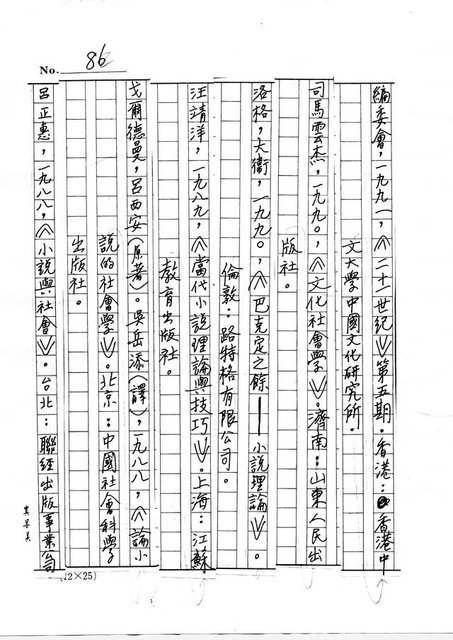 No. 86
編委會,一九九一,《二十一世紀》第五期。香港:香港中
文大學中國文化研究所。
司馬雲杰,一九九〇,《文化社會學》。濟南:山東人民出
版社。
洛格,大衛,一九九〇,《巴克定之餘——小說理論》。
倫敦:路特格有限公司。
汪靖洋,一九八九,《當代小說理論與技巧》。上海:江蘇
教育出版社。
戈爾德曼,呂西安(原著)。吳岳添(譯),一九八八,《論小
說的社會學》。北京:中國社會科學
出版社。
呂正惠,一九八八,《小說與社會》。台北:聯經出版事業公司
12×25)